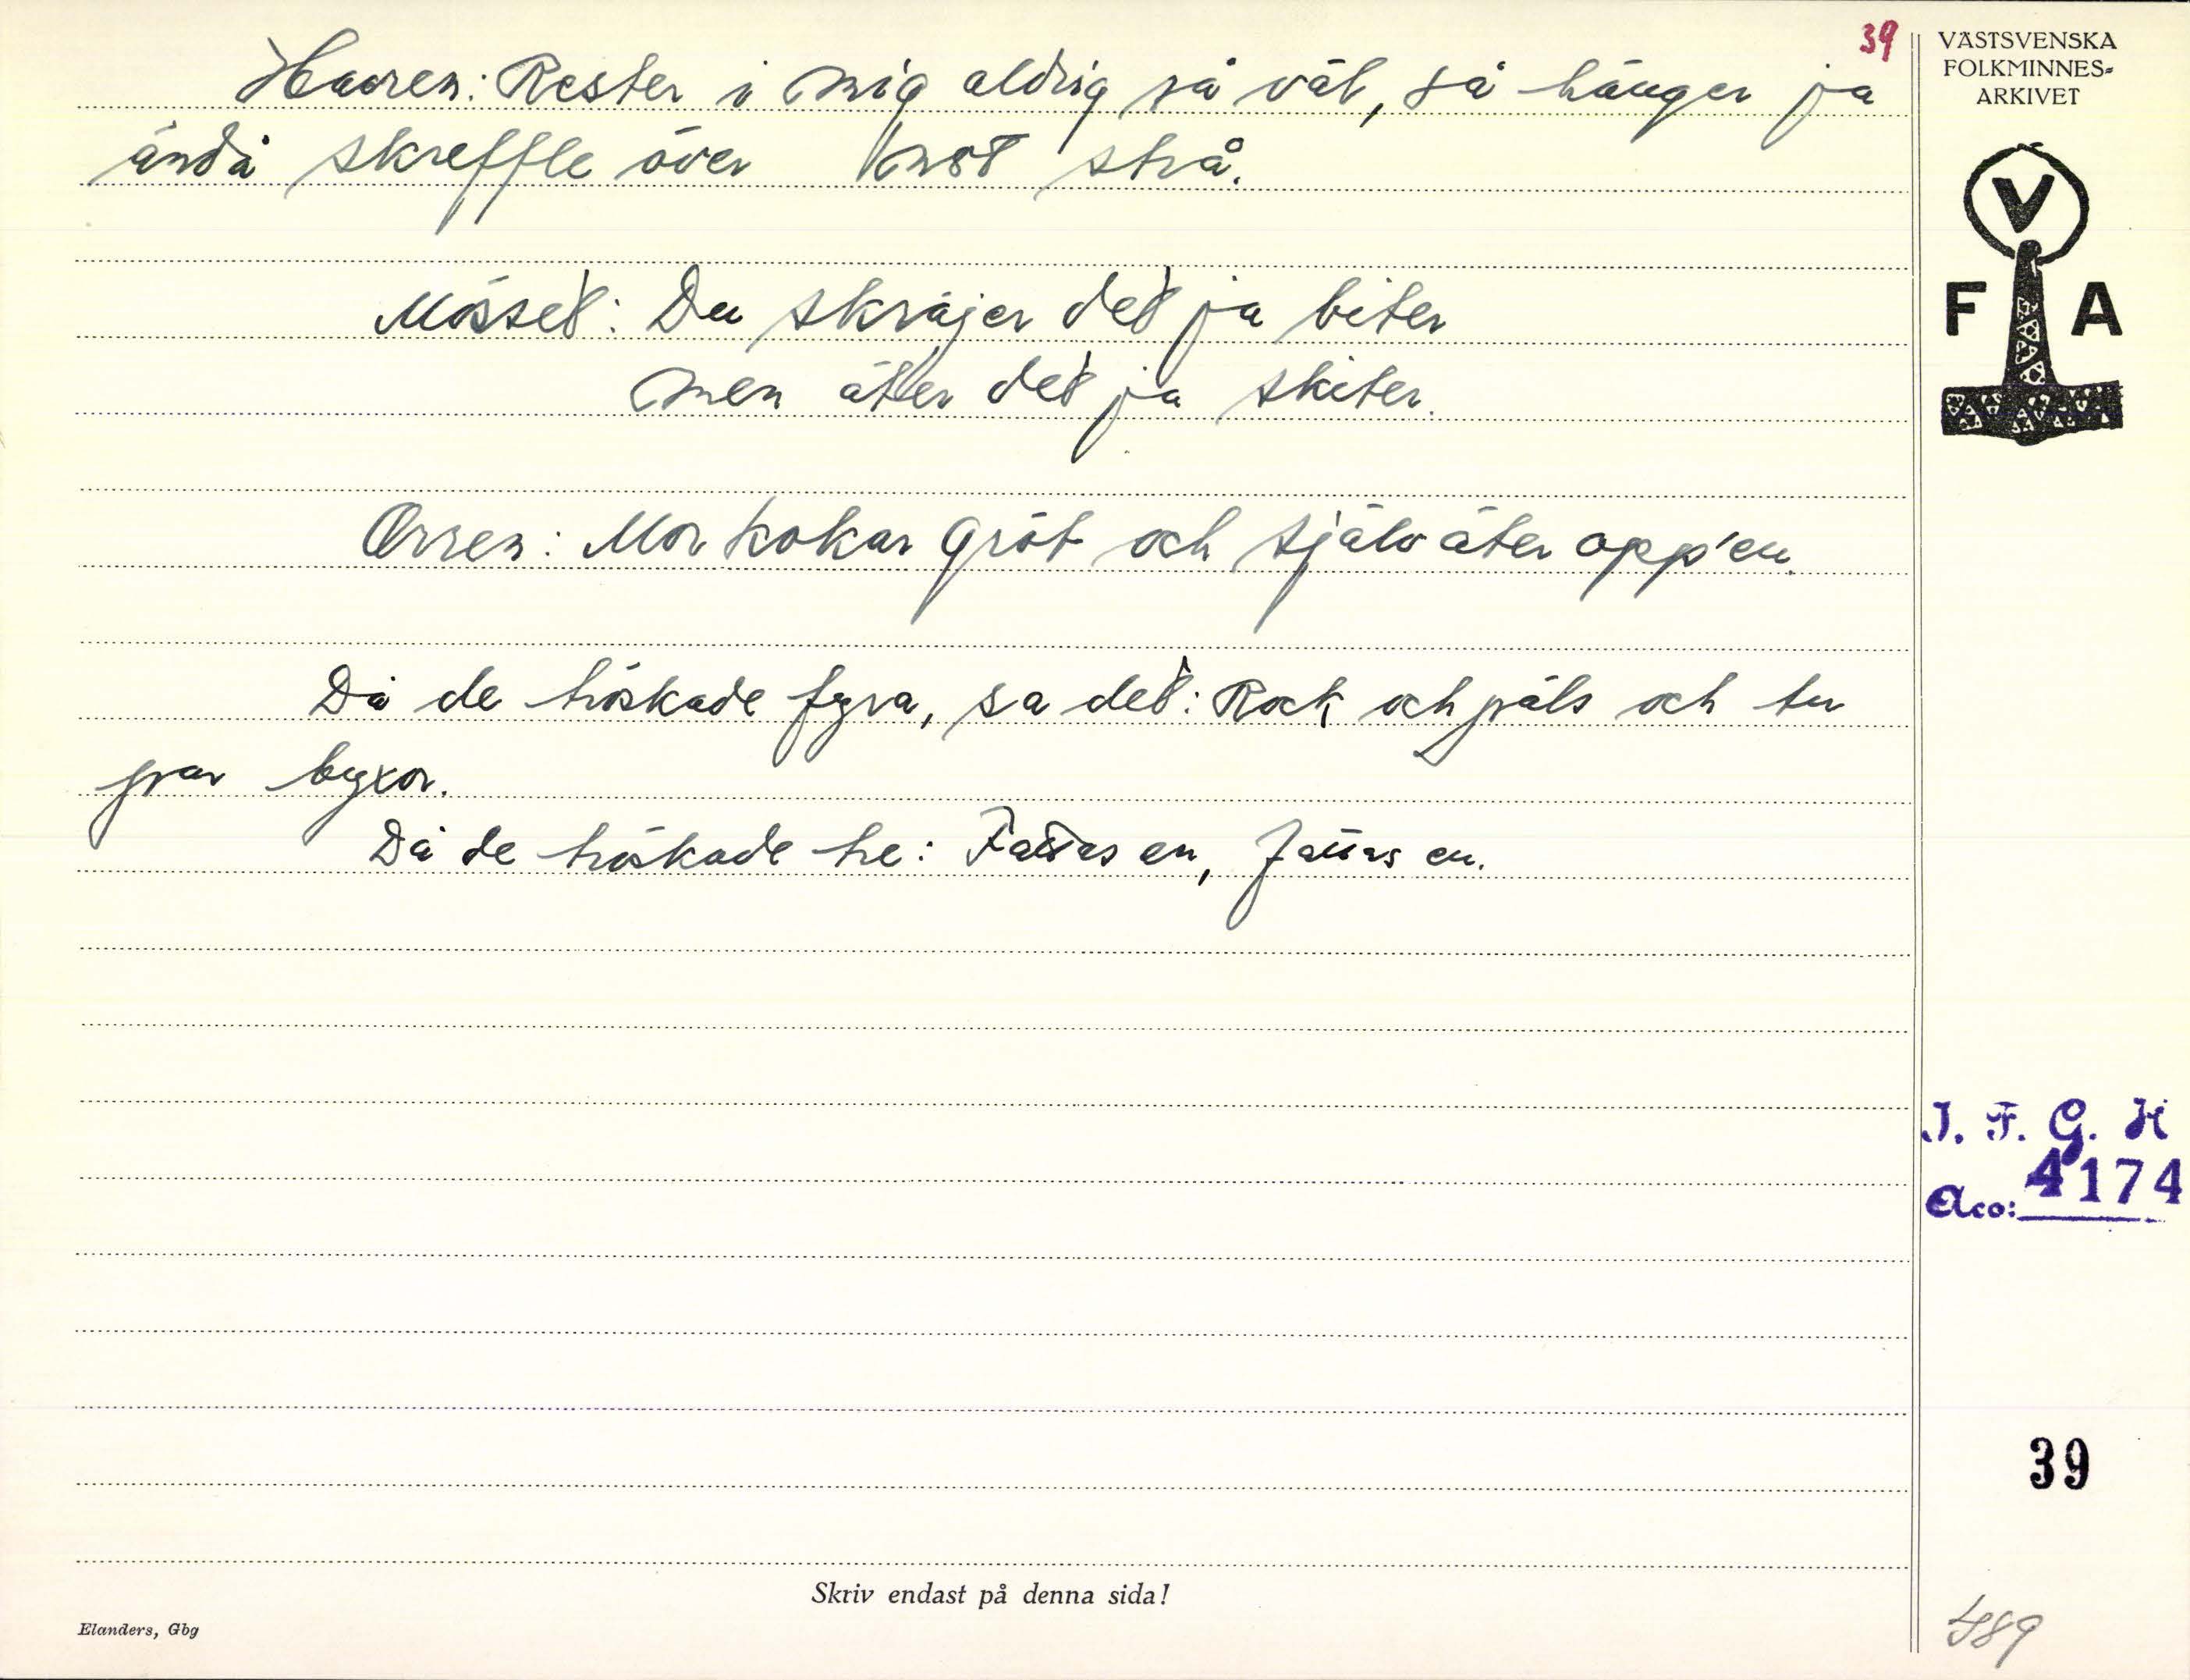 39
Havren: Rester i mig aldrig så väl, så hänger ja
ändå skreffle över mot strå.
Mösset: Du skräjer det ja biter
men äter det ja skiter.
Orren: Mor kokar gröt och själv äter opp'en.
Då de tröskade fyra, sa det: Rock och päls och tu
par byxor.
Då de tröskade tre: Fattas en, fattas en.
VÄSTSVENSKA
FOLKMINNES-
ARKIVET
V
F A
I. F. G. H
Acc: 4174
39
Skriv endast på denna sida!
Elanders, Gbg
489